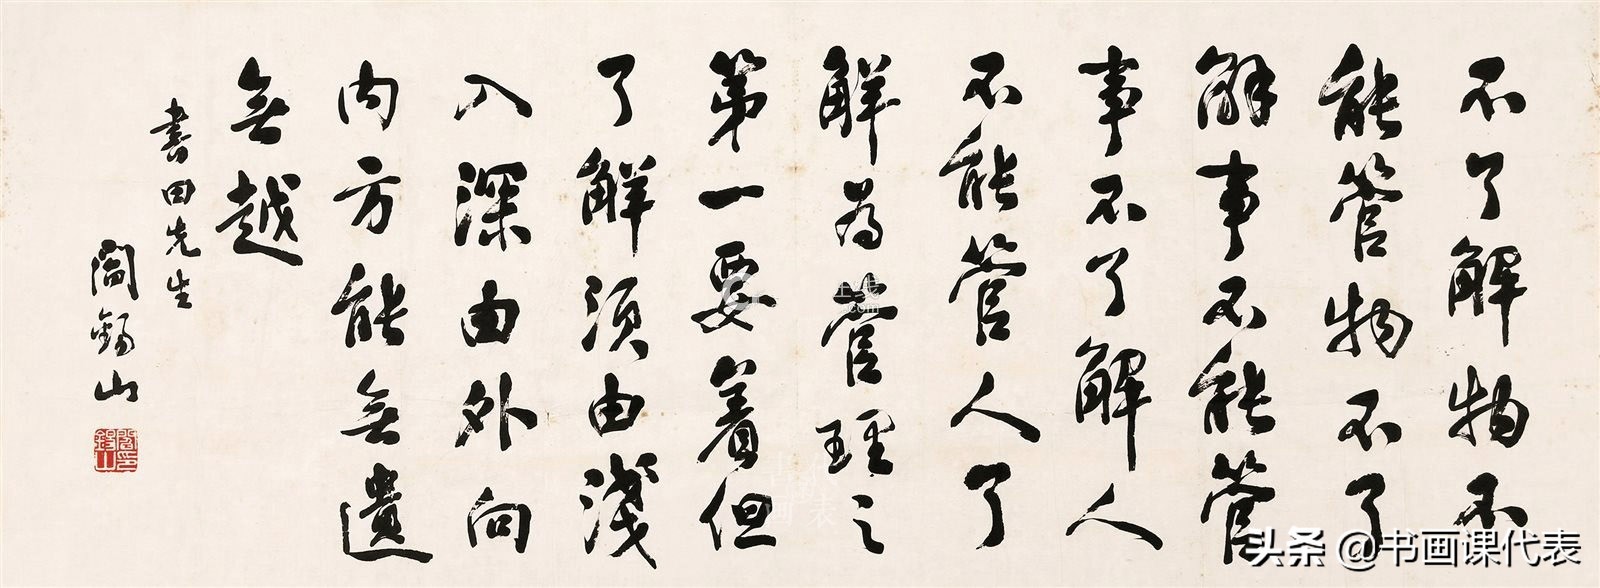 不了解物不
能管物不了
解事不能管
事不了解人
不能管人了
解為管理之
第一要着但
了解須由淺
入深由外向
内方能無遺
無越
書田先生
閻錫山
閻錫山印
头条 @书画课代表